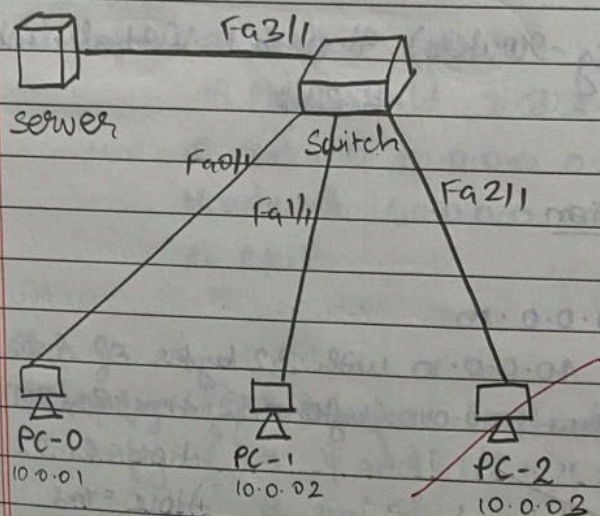 Fa3/1
Server
Switch
Fa0/1
Fa1/1
Fa2/1
PC-0
10.0.01
PC-1
10.0.02
PC-2
10.0.03